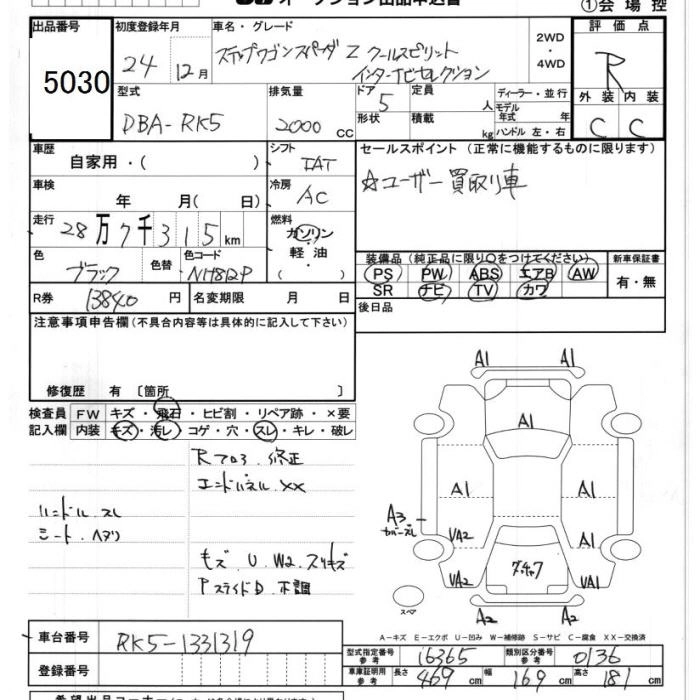 オークション出品申込書 ①会場控
出品番号 5030
初度登録年月 24 12月
車名・グレード ステップワゴンスパーダ Z クールスピリット
インターナビセレクション
2WD・4WD
評価点 R
外装 内装
C C
型式 DBA-RK5
排気量 2000 CC
ドア 5 形状
定員 人
積載 kg
ディーラー・並行
モデル年式 年式
ハンドル 左・右
車歴 自家用・( )
シフト IAT
車検 年 月( 日)
冷房 AC
走行 28万7千315km
燃料 ガソリン
軽油
・( )
色 ブラック
色替
色コード NH812P
R券 13840 円
名変期限 月 日
セールスポイント (正常に機能するものに限ります)
☆ユーザー買取り車
装備品 (純正品に限り○をつけてください)
PS PW ABS エアB AW
SR ナビ TV カワ
新車保証書
有・無
後日品
注意事項申告欄(不具合内容等は具体的に記入して下さい)
修復歴 有 〔箇所 〕
検査員記入欄
FW キズ・飛石・ヒビ割・リペア跡・×要
内装 キズ・汚レ・コゲ・穴・スレ・キレ・破レ
Rフロア.修正
エンドパネル.XX
ハンドル.スレ
シート.ヘタリ
キズ U W2 スリキズ
PスライドD 不調
A1 A1
A1
A1 A1
A1
A3
カバースレ
VA2 A1
VA2 VA1
A2 A2
スペア
A-キズ E-エクボ U-凹み W-補修跡 S-サビ C-腐食 XX-交換済
車台番号 RK5-1331319
登録番号
型式指定番号 参考 16365
類別区分番号 参考 0136
車庫証明用 参考 長さ 469 cm 幅 169 cm 高さ 181 cm